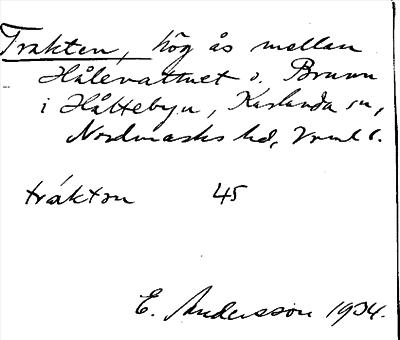 Trakten, hög ås mellan
Hålevattnet o. Brunn
i Håltebyn, Karlanda sn,
Nordmarks hd, Vrml l.
tráktọn 45
E. Andersson 1934.